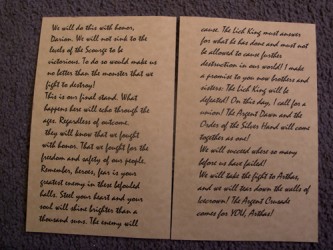 We will do this with honor,
Darion. We will not sink to the
levels of the Scourge to be
victorious. To do so would make us
no better than the monster that we
fight to destroy!
This is our final stand. What
happens here will echo through the
ages. Regardless of outcome,
they will know that we fought
with honor. That we fought for the
freedom and safety of our people.
Remember, heroes, fear is your
greatest enemy in these befouled
halls. Steel your heart and your
soul will shine brighter than a
thousand suns. The enemy will
cause. The Lich King must answer
for what he has done and must not
be allowed to cause further
destruction in our world! I make
a promise to you now brothers and
sisters: The Lich King will be
defeated! On this day, I call for a
union! The Argent Dawn and the
Order of the Silver Hand will come
together as one!
We will succeed where so many
before us have failed!
We will take the fight to Arthas,
and we will tear down the walls of
Icecrown! The Argent Crusade
comes for YOU, Arthas!